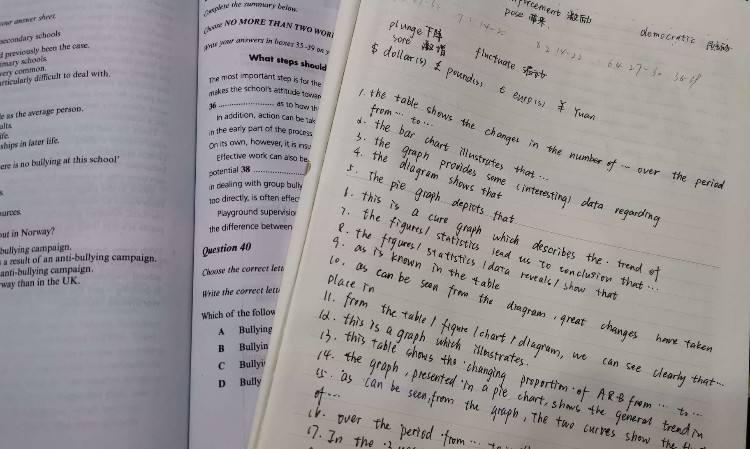 your answer sheet.
secondary schools
d previously been the case.
imary schools
very common.
articularly difficult to deal with.
le as the average person.
ults.
ife.
ships in later life.
ere is no bullying at this school'
s.
urces.
out in Norway?
bullying campaign.
s a result of an anti-bullying campaign.
anti-bullying campaign.
way than in the UK.
Complete the summary below.
Choose NO MORE THAN TWO WOR
Write your answers in boxes 35-39 on y
What steps should
The most important step is for the
makes the school's attitude towar
36 .................... as to how th
In addition, action can be tak
in the early part of the process
On its own, however, it is insu
Effective work can also be
potential 38 ....................
in dealing with group bully
too directly, is often effec
Playground supervisio
the difference between
Question 40
Choose the correct lett
Write the correct lett
Which of the follow
A Bullying
B Bullyin
C Bullyi
D Bully
pose 带来
democratic
plunge 下降
fluctuate
$ dollar(s) £ pound(s) € euro(s) ¥ Yuan
1. the table shows the changes in the number of ... over the period
from ... to ...
2. the bar chart illustrates that ...
3. the graph provides some (interesting) data regarding
4. the diagram shows that
5. The pie graph depicts that
6. this is a cure graph which describes the trend of
7. the figures / statistics lead us to conclusion that ...
8. the figures / statistics / data reveals / show that
9. as is known in the table
10. as can be seen from the diagram, great changes have taken
place in
11. from the table / figure / chart / diagram, we can see clearly that ...
12. this is a graph which illustrates.
13. this table shows the changing proportion of A&B from ... to ...
14. the graph, presented in a pie chart, shows the general trend in
15. as can be seen, from the graph, The two curves show the
of ...
16. over the period from ...
17. In the